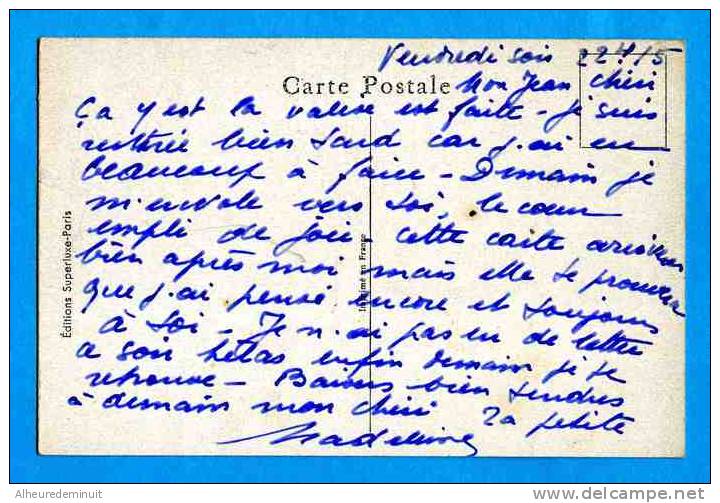 Vendredi soir 22h15
Carte Postale
Mon Jean chéri
Ça y est la valise est faite - je suis
rentrée bien tard car j'ai eu
beaucoup à faire - Demain je
m'envole vers toi, le cœur
empli de joie, cette carte arrivera
bien après moi mais elle te prouvera
que j'ai pensé encore et toujours
à toi - Je n'ai pas eu de lettre
ce soir hélas enfin demain je te
retrouve - Baisers bien tendres
à demain mon chéri Ta petite
Madeleine
Editions Superluxe-Paris
Imprimé en France
Alheuredeminuit
www.delcampe.net